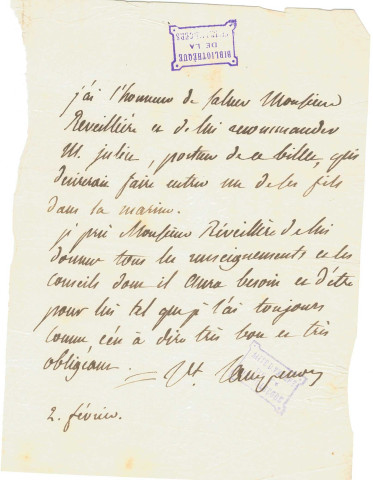 BIBLIOTHÈQUE
DE LA
j'ai l'honneur de saluer Monsieur
Réveillère et de lui recommander
M. julien, porteur de ce billet, qui
désirerait faire entrer un de ses fils
dans la marine.
je prie Monsieur Réveillère de lui
donner tous les renseignements et les
conseils dont il aura besoin et d'être
pour lui tel que je l'ai toujours
connu, c'en à dire très bon et très
obligeant.
2. février.